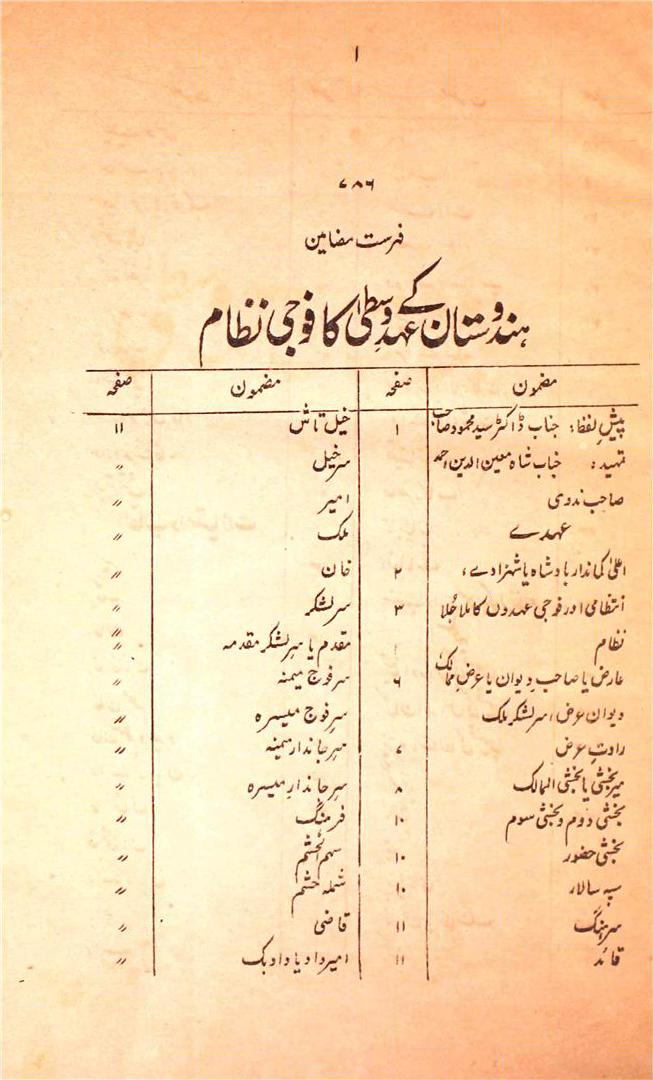 ۱
۷۸۶
فہرست مضامین
ہندوستان کے عہدِ وسطیٰ کا فوجی نظام
مضمون صفحہ
پیش لفظ: جناب ڈاکٹر سید محمود صاحب ۱
تمہید: جناب شاہ معین الدین احمد
صاحب ندوی
عہدے
اعلیٰ کماندار بادشاہ یا شہزادے، ۲
انتظامی اور فوجی عہدوں کا ملا جُلا ۳
نظام
عارض یا صاحب دیوان یا عرض ممالک ۶
دیوان عرض، سر لشکر ملک
راوتِ عرض ۷
میر بخشی یا بخشی الممالک ۸
بخشی دوم و بخشی سوم ۱۰
بخشی حضور ۱۰
سپہ سالار ۱۰
سرہنگ ۱۱
قائد ۱۱
مضمون صفحہ
خیل تاش ۱۱
سرخیل 〃
امیر 〃
ملک 〃
خان 〃
سر لشکر 〃
مقدم یا سر لشکر مقدمہ 〃
سر فوج میمنہ 〃
سر فوج میسرہ 〃
سر جاندار میمنہ 〃
سر جاندارِ میسرہ 〃
فرہنگ 〃
سہم الحشم 〃
شملہ حشم 〃
قاضی 〃
امیر داد یا داد بک 〃